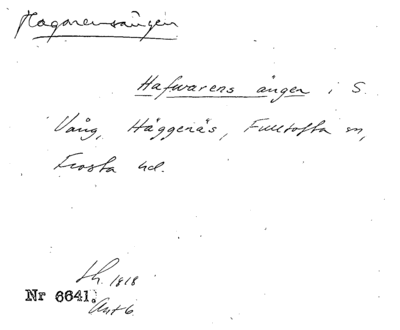 Hagarensången
Hafwarens ången i S.
Vång, Häggenäs, Fulltofta sn,
Frosta hd.
Sk. 1818
Nr 6641.
Akt 6.